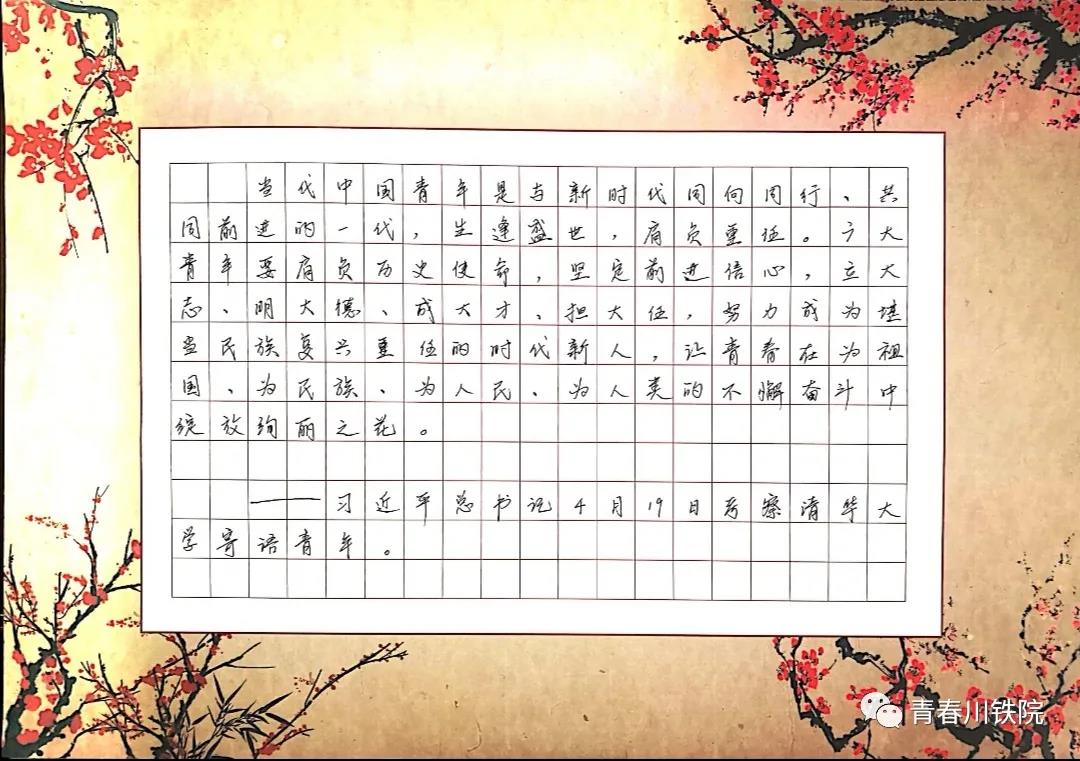 当代中国青年是与新时代同向同行、共
同前进的一代，生逢盛世，肩负重任。广大
青年要肩负历史使命，坚定前进信心，立大
志、明大德、成大才、担大任，努力成为堪
当民族复兴重任的时代新人，让青春在为祖
国、为民族、为人民、为人类的不懈奋斗中
绽放绚丽之花。
——习近平总书记4月19日考察清华大
学寄语青年。
青春川铁院